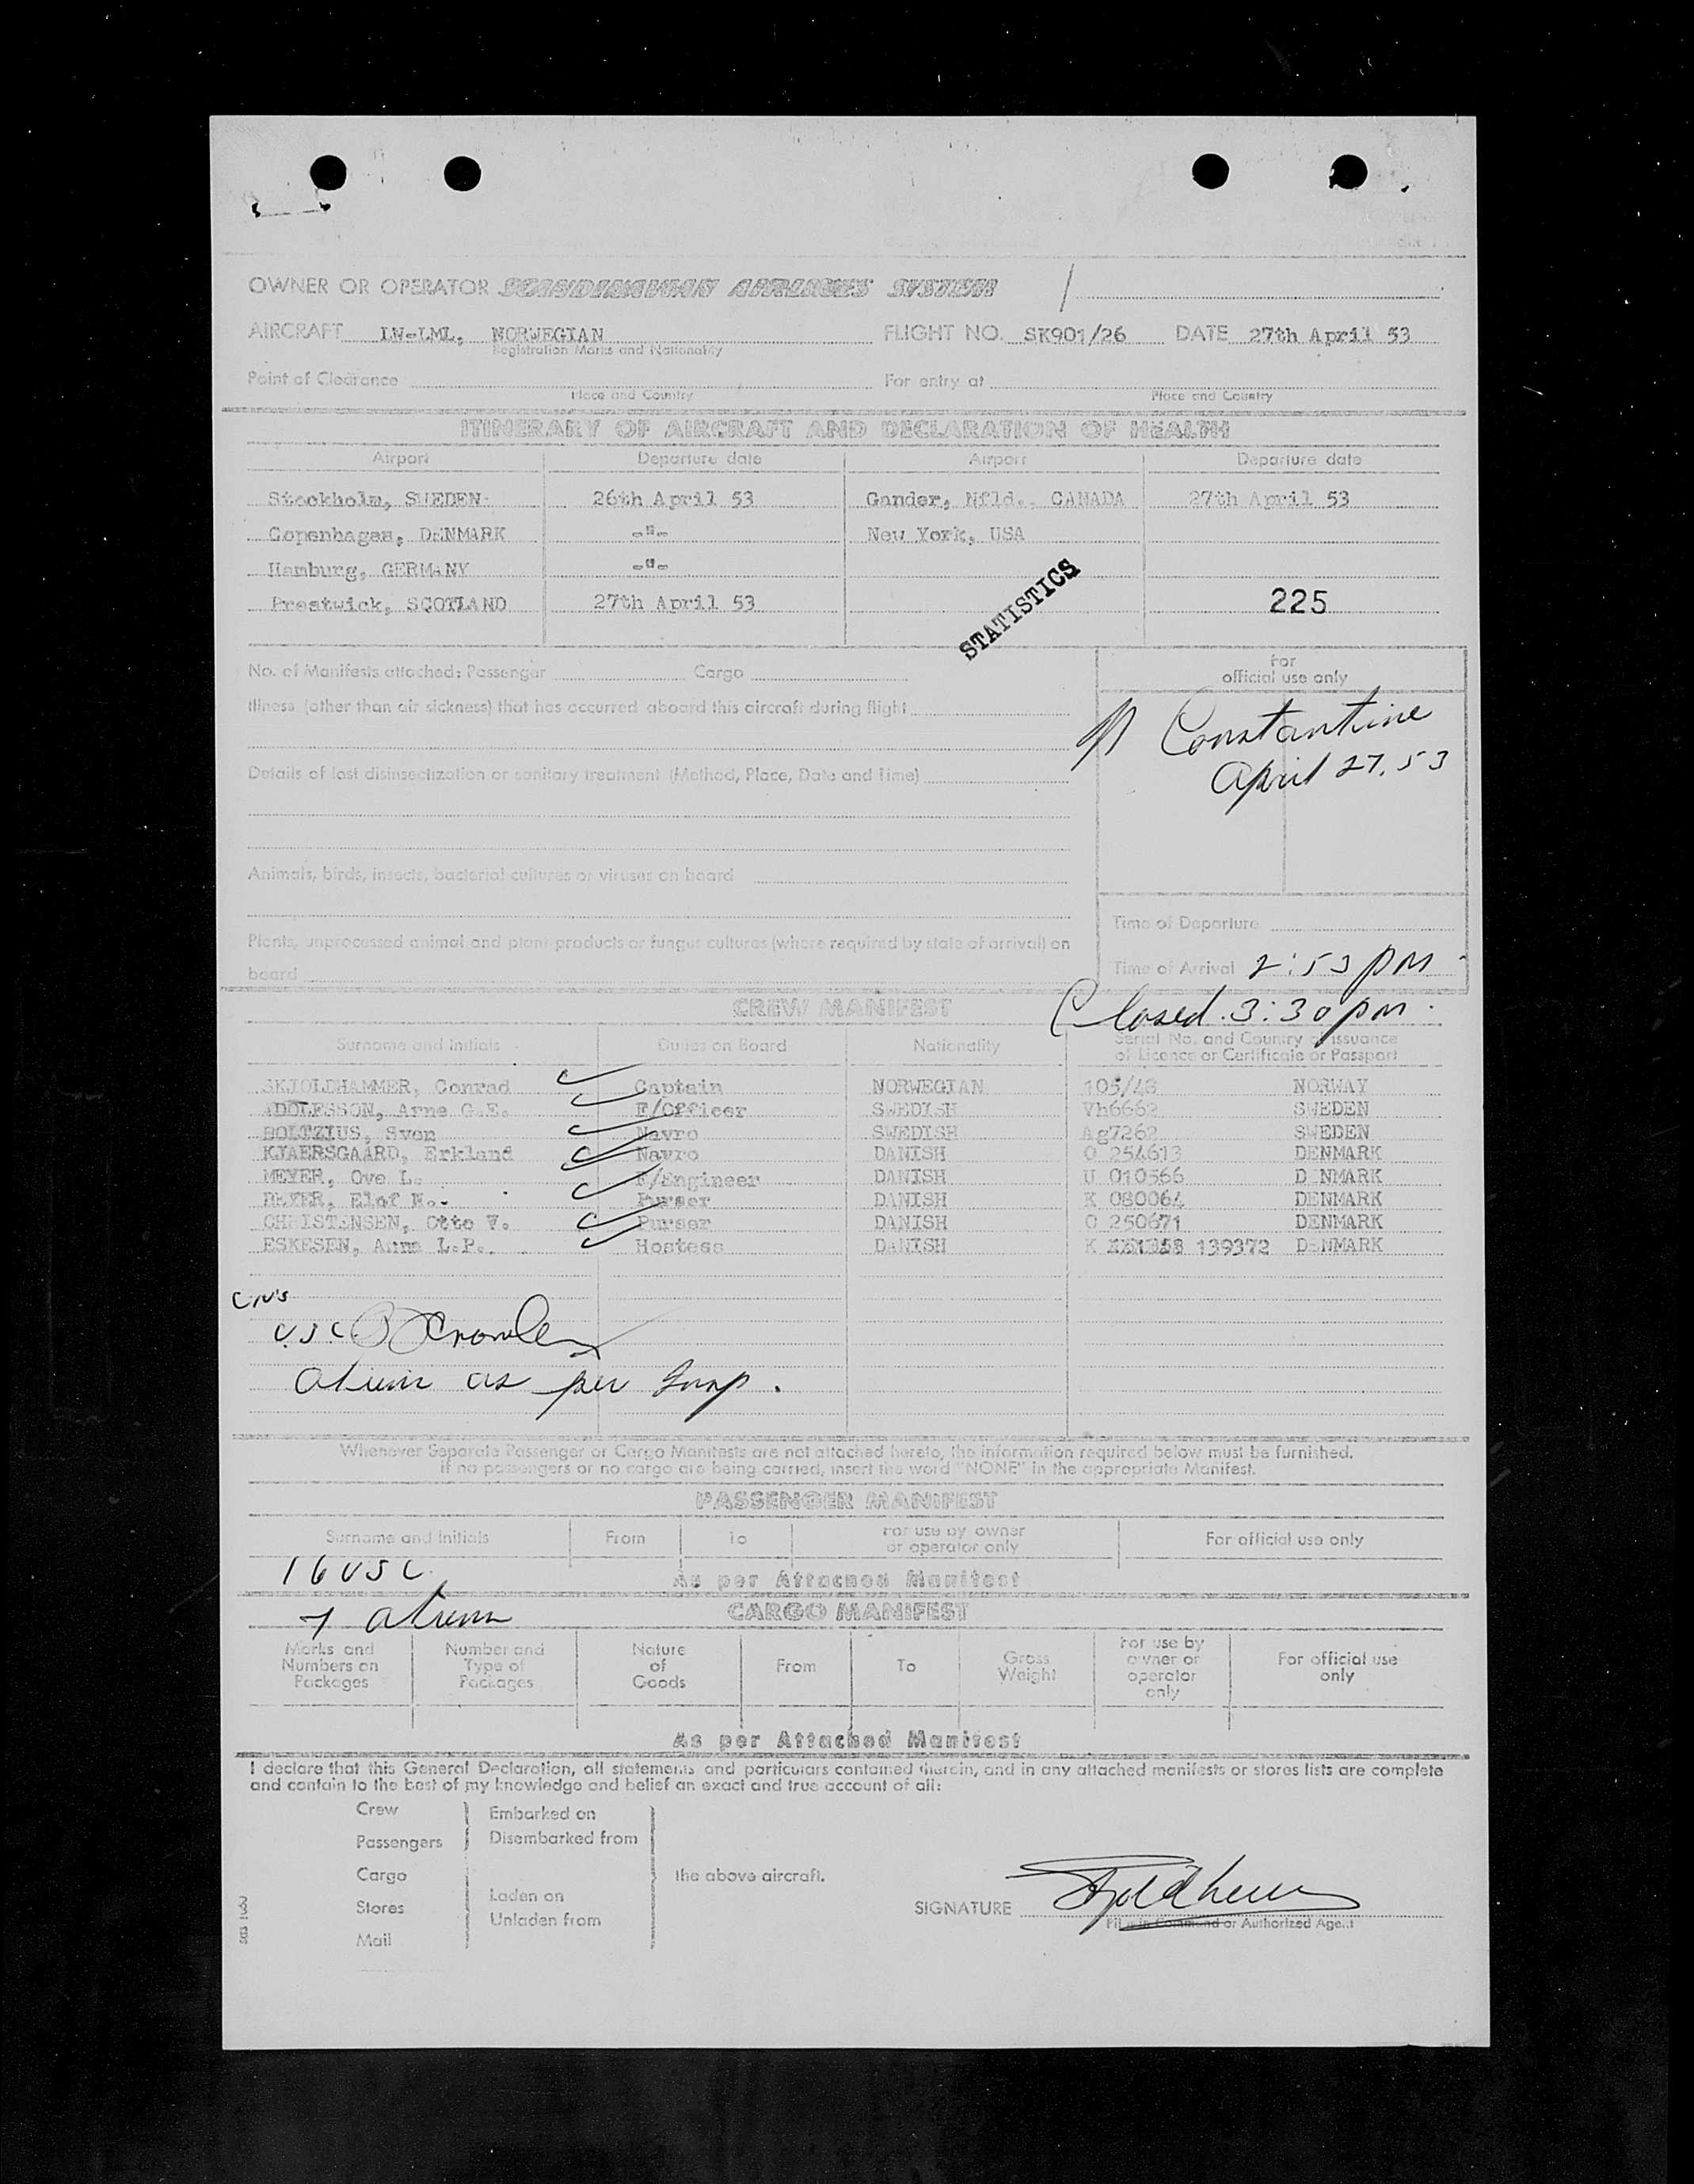 OWNER OR OPERATOR SCANDINAVIAN AIRLINES SYSTEM
AIRCRAFT LN-LML, NORWEGIAN FLIGHT NO. SK901/26 DATE 27th April 53
Registration Marks and Nationality
Point of Clearance For entry at
Place and Country Place and Country
ITINERARY OF AIRCRAFT AND DECLARATION OF HEALTH
Airport Departure date Airport Departure date
Stockholm, SWEDEN 26th April 53 Gander, Nfld., CANADA 27th April 53
Copenhagen, DENMARK -"- New York, USA
Hamburg, GERMANY -"-
Prestwick, SCOTLAND 27th April 53 225
STATISTICS
No. of Manifests attached: Passenger Cargo
For
official use only
Illness (other than air sickness) that has occurred aboard this aircraft during flight
Constantine
April 27, 53
Details of last disinsectization or sanitary treatment (Method, Place, Date and Time)
Animals, birds, insects, bacterial cultures or viruses on board
Time of Departure
Plants, unprocessed animal and plant products or fungus cultures (where required by state of arrival) on
board
Time of Arrival 2:53 pm
Closed. 3:30 pm.
CREW MANIFEST
Surname and Initials Duties on Board Nationality Serial No. and Country of issuance
of Licence or Certificate or Passport
SKJOLDHAMMER, Conrad Captain NORWEGIAN 105/48 NORWAY
ADOLFSSON, Arne G.E. F/Officer SWEDISH Vh6662 SWEDEN
BOLTZIUS, Sven Navro SWEDISH Ag7262 SWEDEN
KJAERSGAARD, Erkland Navro DANISH O 254613 DENMARK
MEYER, Ove L. F/Engineer DANISH U 010566 DENMARK
Elof N. Purser DANISH K 080064 DENMARK
CHRISTENSEN, Otto V. Purser DANISH O 250671 DENMARK
ESKESEN, Anna L.P. Hostess DANISH K 139372 DENMARK
USC Crowley
as per
Whenever Separate Passenger or Cargo Manifests are not attached hereto, the information required below must be furnished.
If no passengers or no cargo are being carried, insert the word "NONE" in the appropriate Manifest.
PASSENGER MANIFEST
Surname and Initials From To For use by owner
or operator only For official use only
16 USC
As per Attached Manifest
CARGO MANIFEST
Marks and
Numbers on
Packages
Number and
Type of
Packages
Nature
of
Goods
From
To
Gross
Weight
For use by
owner or
operator
only
For official use
only
As per Attached Manifest
I declare that this General Declaration, all statements and particulars contained therein, and in any attached manifests or stores lists are complete
and contain to the best of my knowledge and belief an exact and true account of all:
Crew Embarked on
Passengers Disembarked from
Cargo the above aircraft.
Stores Laden on
Unladen from
Mail
SIGNATURE
Pilot in Command or Authorized Agent